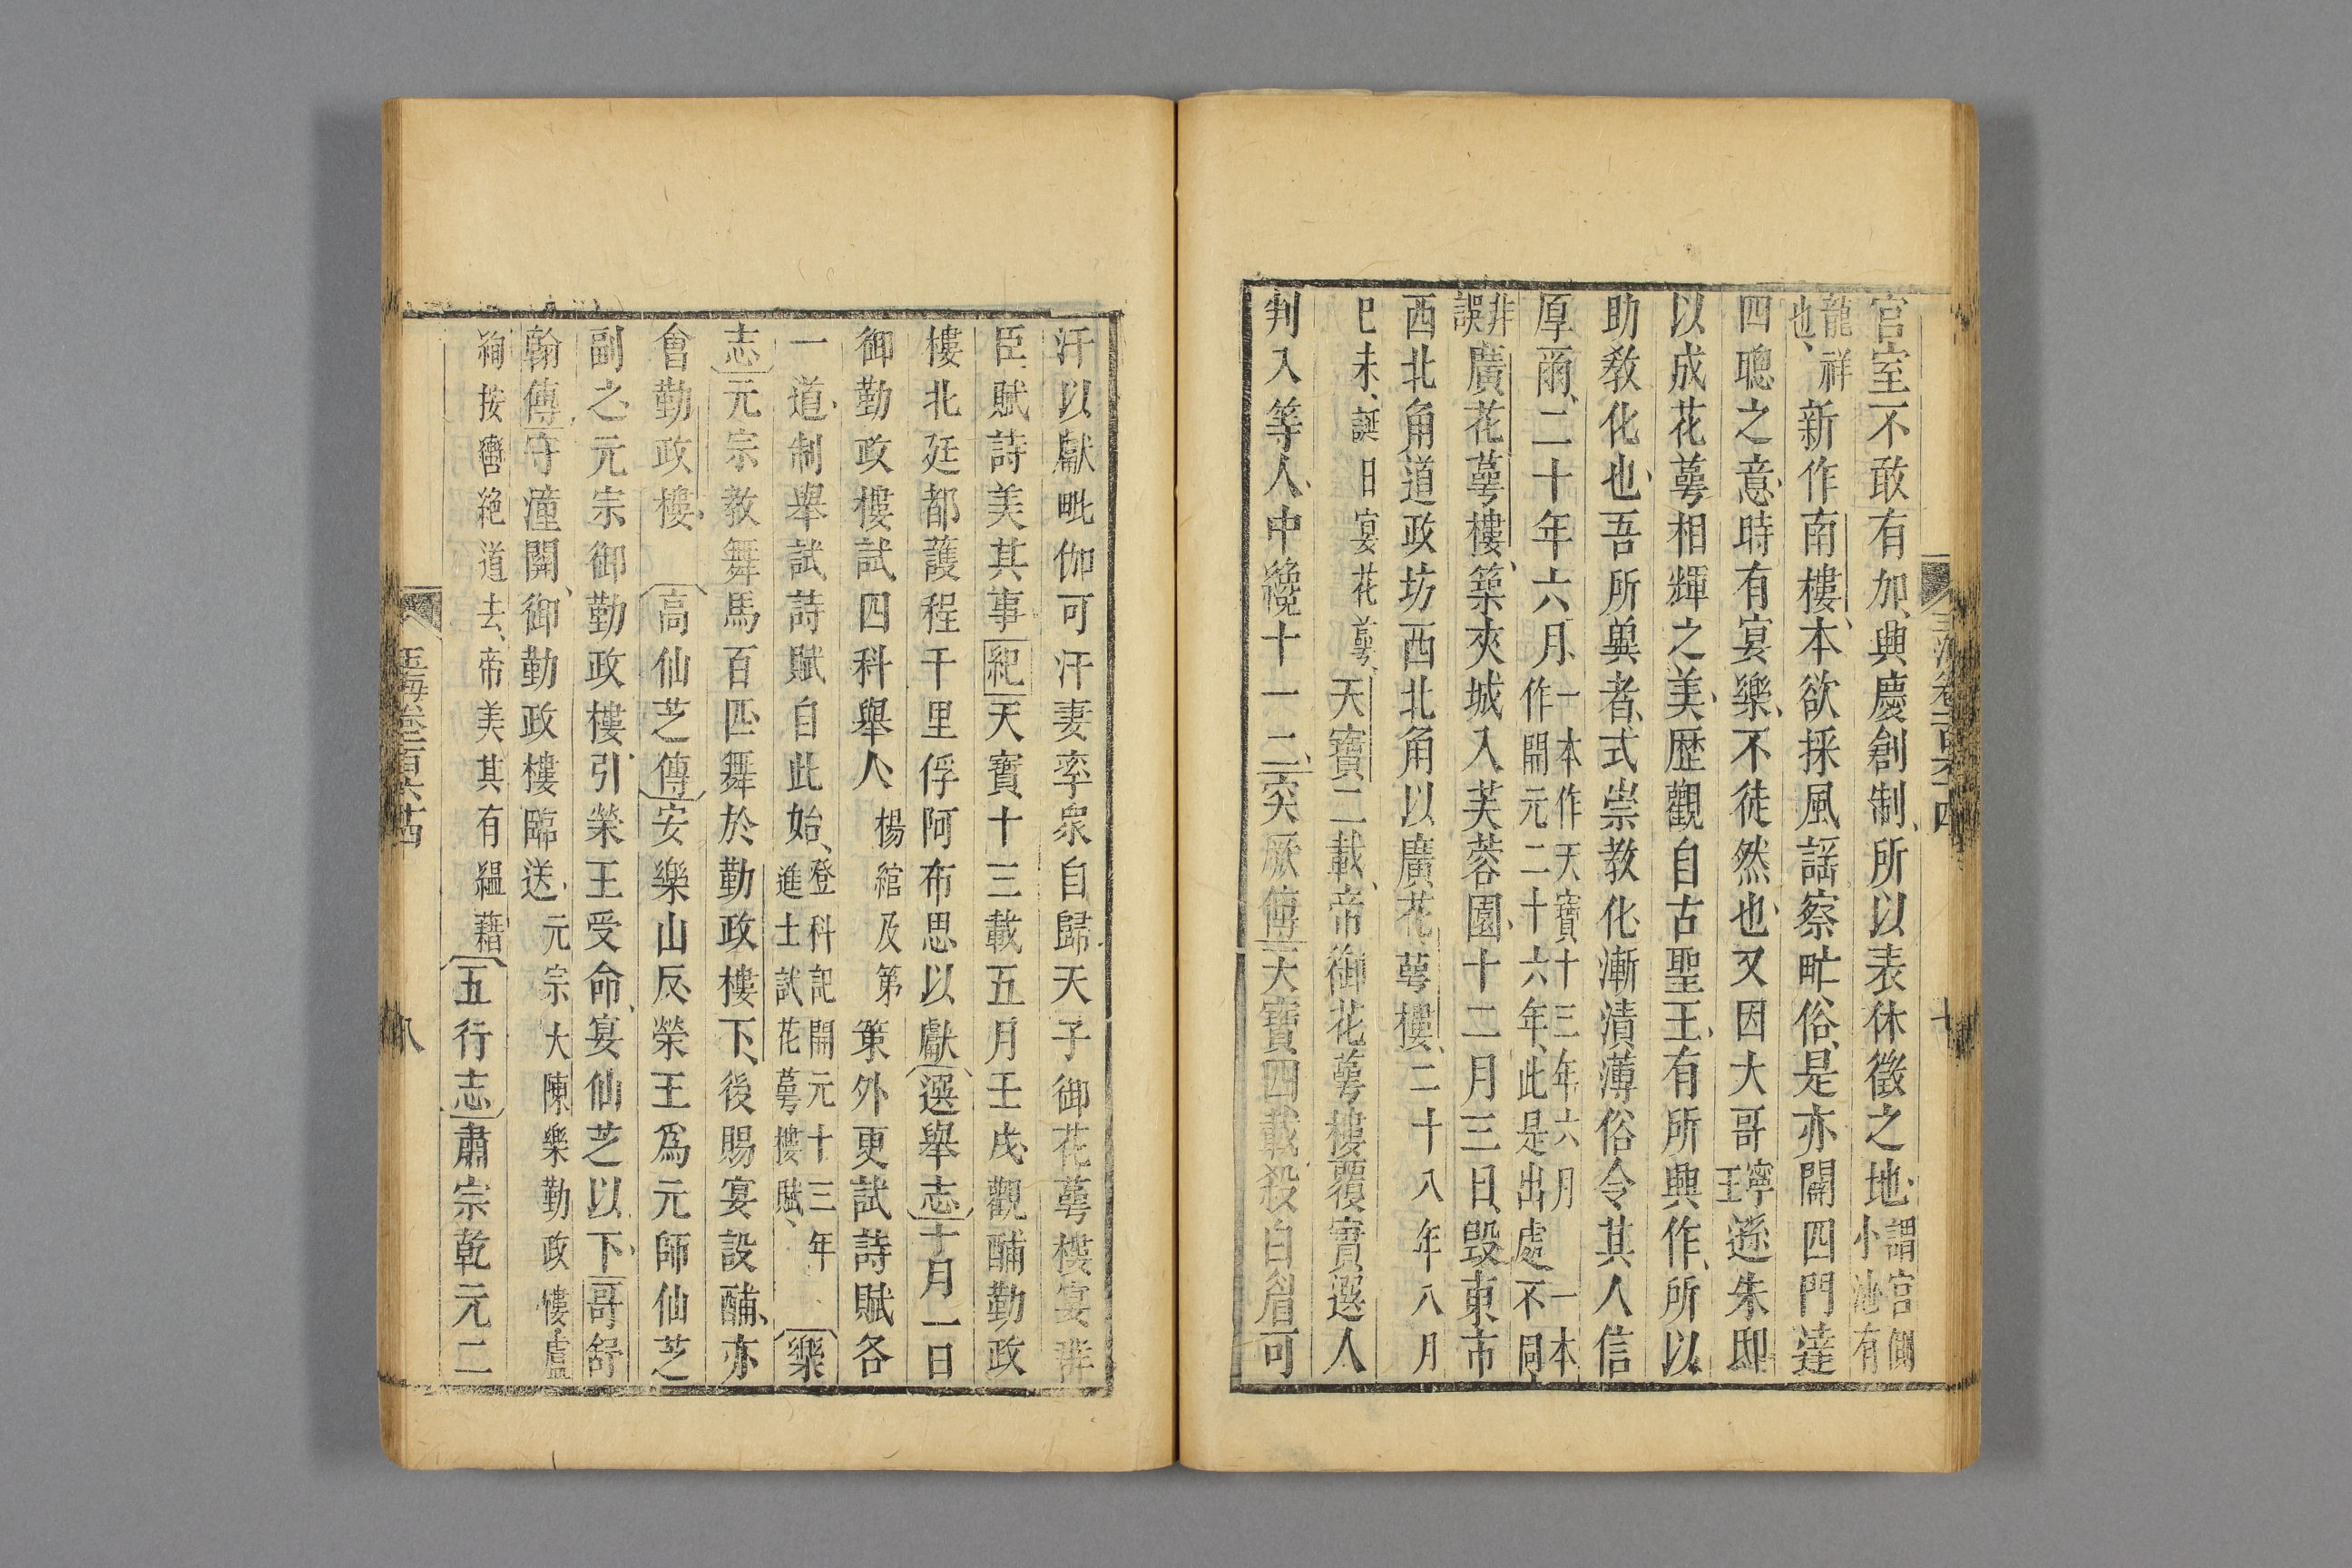 玉海卷一百六十四
十
官室不敢有加興慶創制所以表休徵之地謂宮側小池有
龍祥也新作南樓本欲採風謡察甿俗是亦闢四門達
四聰之意時有宴樂不徒然也又因大哥寧王遜朱邸
以成花萼相輝之美歷觀自古聖王有所興作所以
助教化也吾所興者式崇教化漸漬薄俗令其人信
厚爾二十年六月一本作天寶十三年六月一本作開元二十六年此是出處不同
非誤廣花萼樓築夾城入芙蓉園十二月三日毀東市
西北角道政坊西北角以廣花萼樓二十八年八月
巳未誕日宴花萼天寶二載帝御花萼樓覆實選人
判入等人中纔十一二突厥傳天寶四載殺白眉可
汗以獻毗伽可汗妻率衆自歸天子御花萼樓宴群
臣賦詩美其事紀天寶十三載五月壬戌觀酺勤政
樓北廷都護程千里俘阿布思以獻選舉志十月一日
御勤政樓試四科舉人楊綰及第策外更試詩賦各
一道制舉試詩賦自此始登科記開元十三年進士試花萼樓賦樂
志元宗教舞馬百匹舞於勤政樓下後賜宴設酺亦
會勤政樓高仙芝傳安樂山反榮王爲元師仙芝
副之元宗御勤政樓引榮王受命宴仙芝以下哥舒
翰傳守潼關御勤政樓臨送元宗大陳樂勤政樓盧
絢按轡絶道去帝美其有緼藉五行志肅宗乾元二
玉海卷一百六十四
八